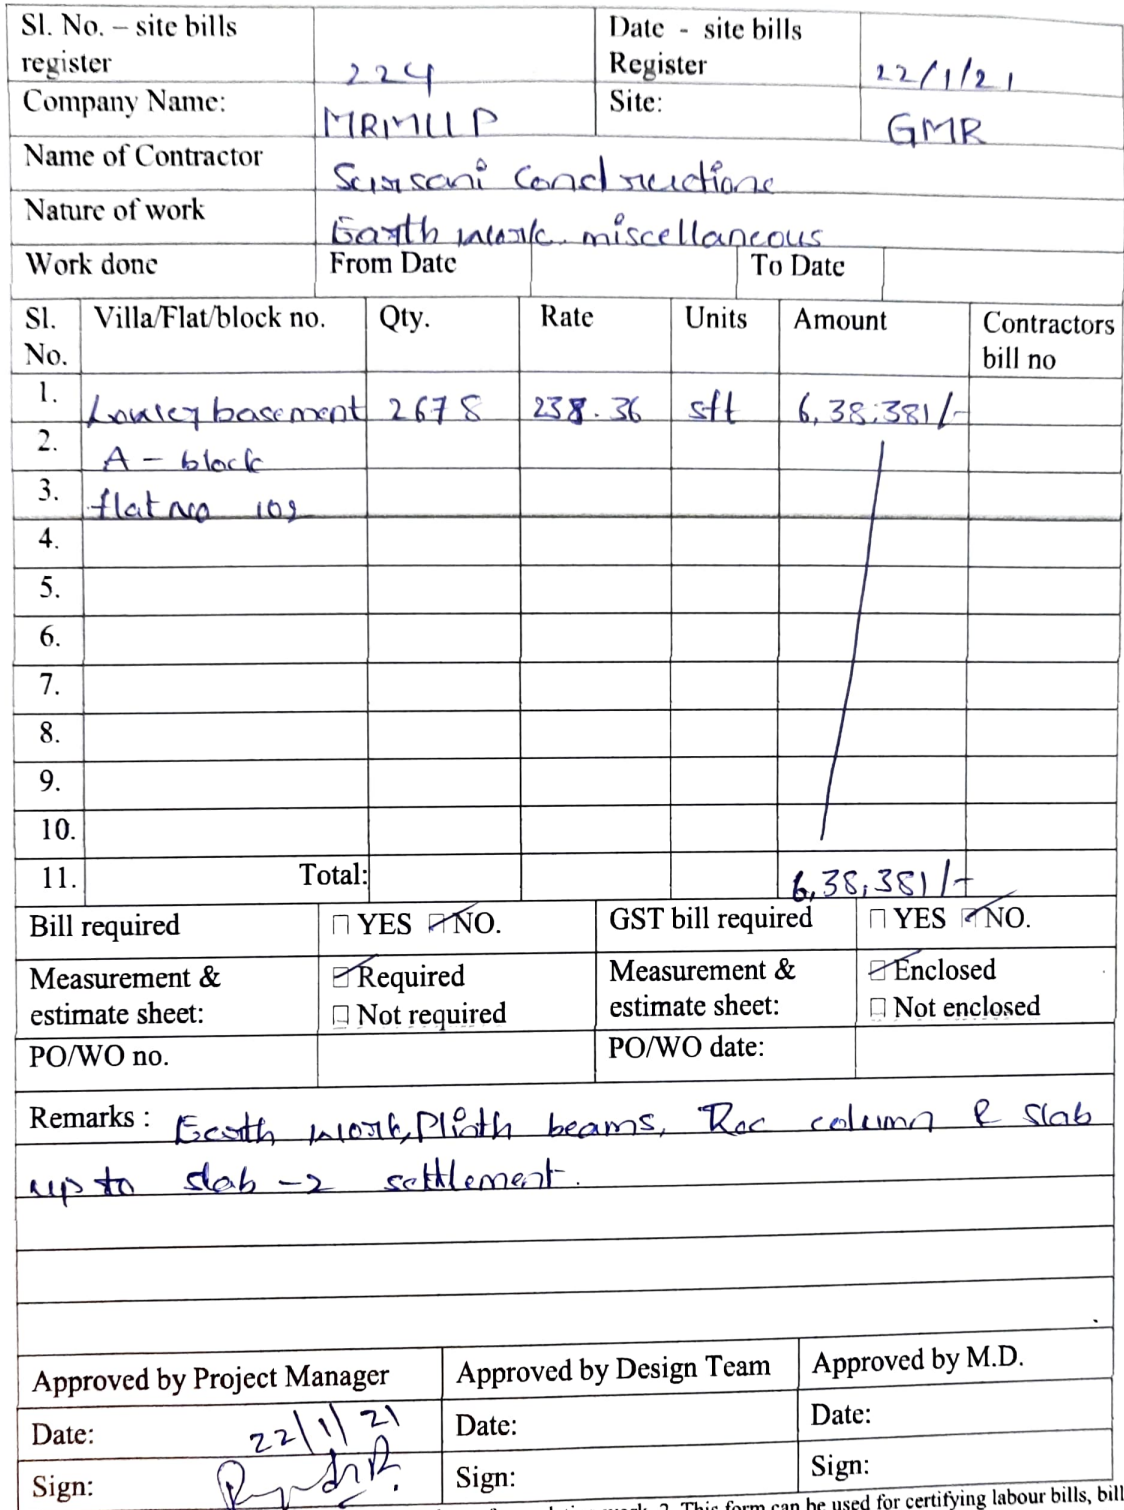 Sl. No. – site bills register 224 Date - site bills Register 22/1/21
Company Name: MRMLLP Site: GMR
Name of Contractor Sarsani Constructions
Nature of work Earth work miscellaneous
Work done From Date To Date
Sl. No. Villa/Flat/block no. Qty. Rate Units Amount Contractors bill no
1. Lower basement 2678 238.36 sft 6,38,381/-
2. A - block
3. flat no 102
4.
5.
6.
7.
8.
9.
10.
11. Total: 6,38,381/-
Bill required YES NO. GST bill required YES NO.
Measurement & estimate sheet: Required Not required Measurement & estimate sheet: Enclosed Not enclosed
PO/WO no. PO/WO date:
Remarks : Earth work, Plinth beams, Rcc column & slab
up to slab -2 settlement.
Approved by Project Manager Approved by Design Team Approved by M.D.
Date: 22/1/21 Date: Date:
Sign: Sign: Sign:
2. This form can be used for certifying labour bills, bill